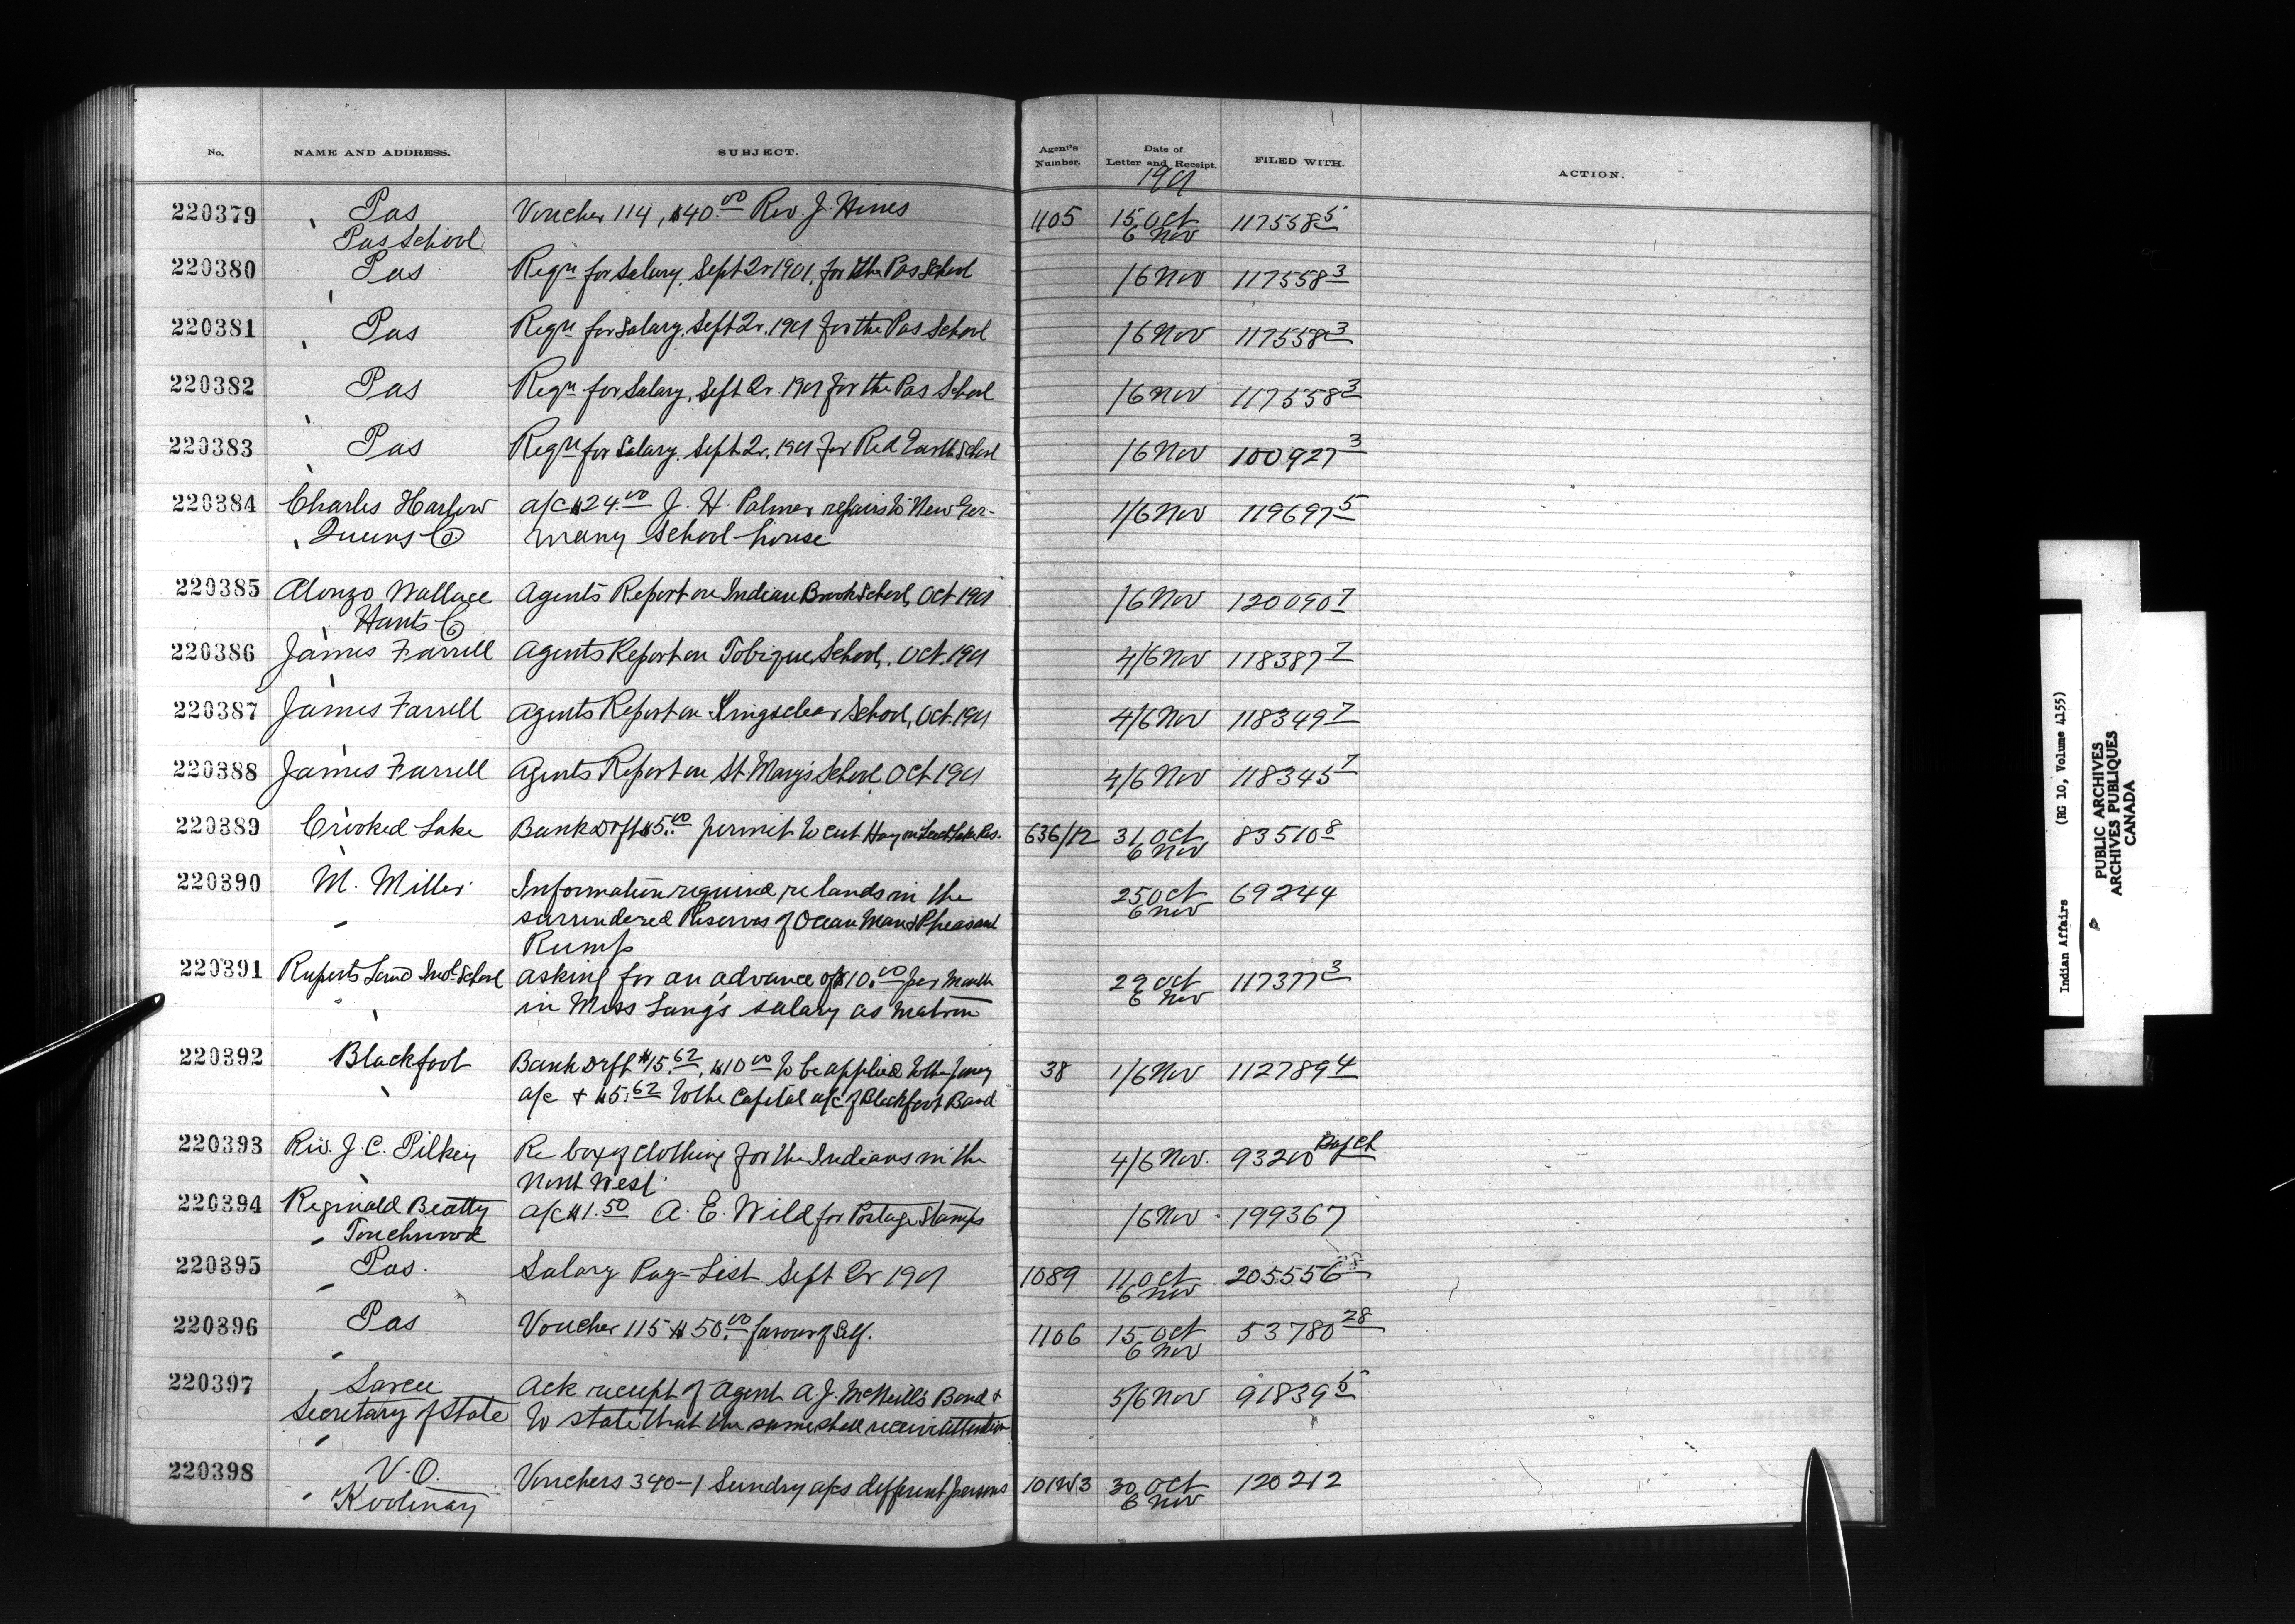 No. NAME AND ADDRESS. SUBJECT. Agent's Number. Date of Letter and Receipt. FILED WITH. ACTION.
1901
220379 Pas Voucher 114, $40.00 Rev. J. Hines 1105 15 Oct 117558 5
Pas School 6 Nov
220380 Pas Reqn for Salary, Sept Qr 1901, for the Pas School 1/6 Nov 117558 3
220381 Pas Reqn for Salary, Sept Qr. 1901 for the Pas School 1/6 Nov 117558 3
220382 Pas Reqn for Salary, Sept Qr. 1901 for the Pas School 1/6 Nov 117558 3
220383 Pas Reqn for Salary, Sept Qr. 1901 for Red Earth School 1/6 Nov 100927 3
220384 Charles Harlow a/c $24.00 J. H. Palmer repairs to New Ger- 1/6 Nov 119697 5
Queens Co many School-house
220385 Alonzo Wallace Agents Report on Indian Brook School, Oct 1901 1/6 Nov 120090 7
Hants Co
220386 James Farrell Agents Report on Tobique School, Oct. 1901 4/6 Nov 118387 7
220387 James Farrell Agents Report on Kingsclear School, Oct. 1901 4/6 Nov 118349 7
220388 James Farrell Agents Report on St Mary's School, Oct 1901 4/6 Nov 118345 7
220389 Crooked Lake Bank Drft $5.00 permit to cut Hay on Res. 636/12 31 Oct 83510 8
6 Nov
220390 M. Miller Information required re lands in the 25 Oct 69244
surrendered Reserves of Ocean Man & Pheasant 6 Nov
Rump
220391 Ruperts Land Indl School asking for an advance of $10.00 per Month 29 Oct 117377 3
in Miss Lang's salary as Matron 6 Nov
220392 Blackfoot Bank Drft $15.62, $10.00 to be applied to the 38 1/6 Nov 112789 4
a/c & $5.62 to the Capital a/c of Blackfoot Band
220393 Rev. J. C. Pilkey Re box of clothing for the Indians in the 4/6 Nov. 93200
North West
220394 Reginald Beatty a/c $1.50 A. E. Wild for Postage Stamps 1/6 Nov 199367
Touchwood
220395 Pas. Salary Pay-List Sept Qr 1901 1089 11 Oct 205556
6 Nov
220396 Pas Voucher 115 $50.00 favour of Self. 1106 15 Oct 53780 28
6 Nov
220397 Sarcee Ack receipt of Agent A. J. McNeill's Bond & 5/6 Nov 91839 5
Secretary of State to state that the same shall receive attention
220398 V.O. Vouchers 340-1 Sundry a/cs different persons 101W3 30 Oct 120212
Kootenay 6 Nov
Indian Affairs (RG 10, Volume 4155)
PUBLIC ARCHIVES
ARCHIVES PUBLIQUES
CANADA